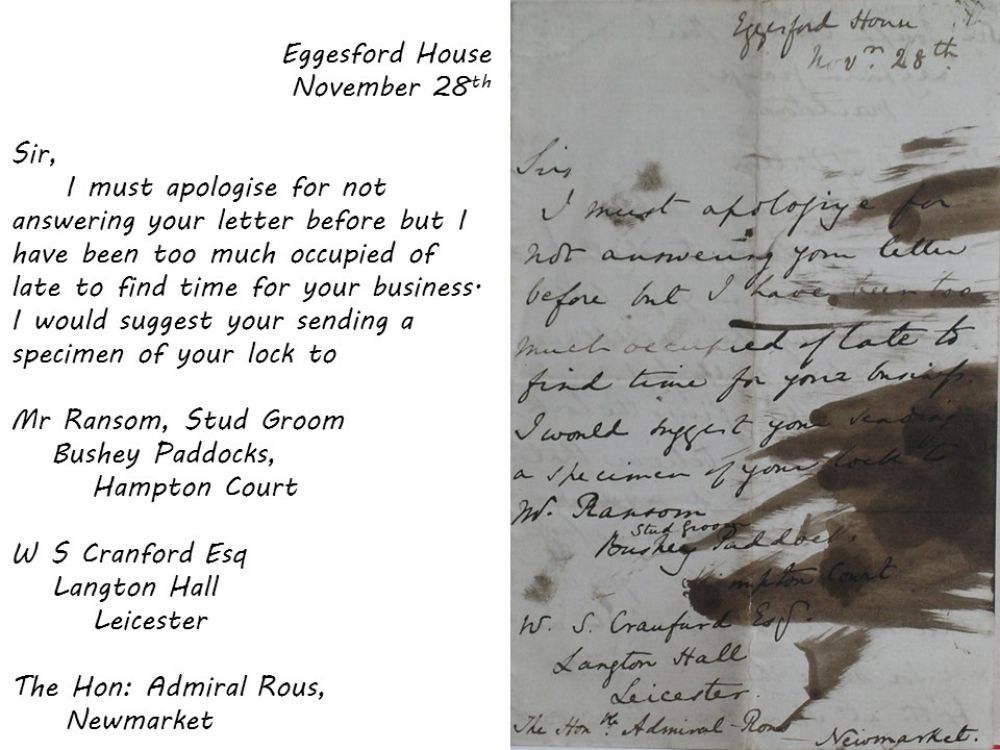 Eggesford House
November 28th
Sir,
I must apologise for not
answering your letter before but I
have been too much occupied of
late to find time for your business.
I would suggest your sending a
specimen of your lock to
Mr Ransom, Stud Groom
Bushey Paddocks,
Hampton Court
W S Cranford Esq
Langton Hall
Leicester
The Hon: Admiral Rous,
Newmarket
Eggesford House
Novr 28th
Sir,
I must apologize for
not answering your letter
before but I have been too
much occupied of late to
find time for your business.
I would suggest your sending
a specimen of your lock to
Mr. Ransom
Stud Groom
Bushey Paddocks.
mpton Court
W. S. Craufurd Esq.
Langton Hall
Leicester.
The Honble Admiral Rous
Newmarket.